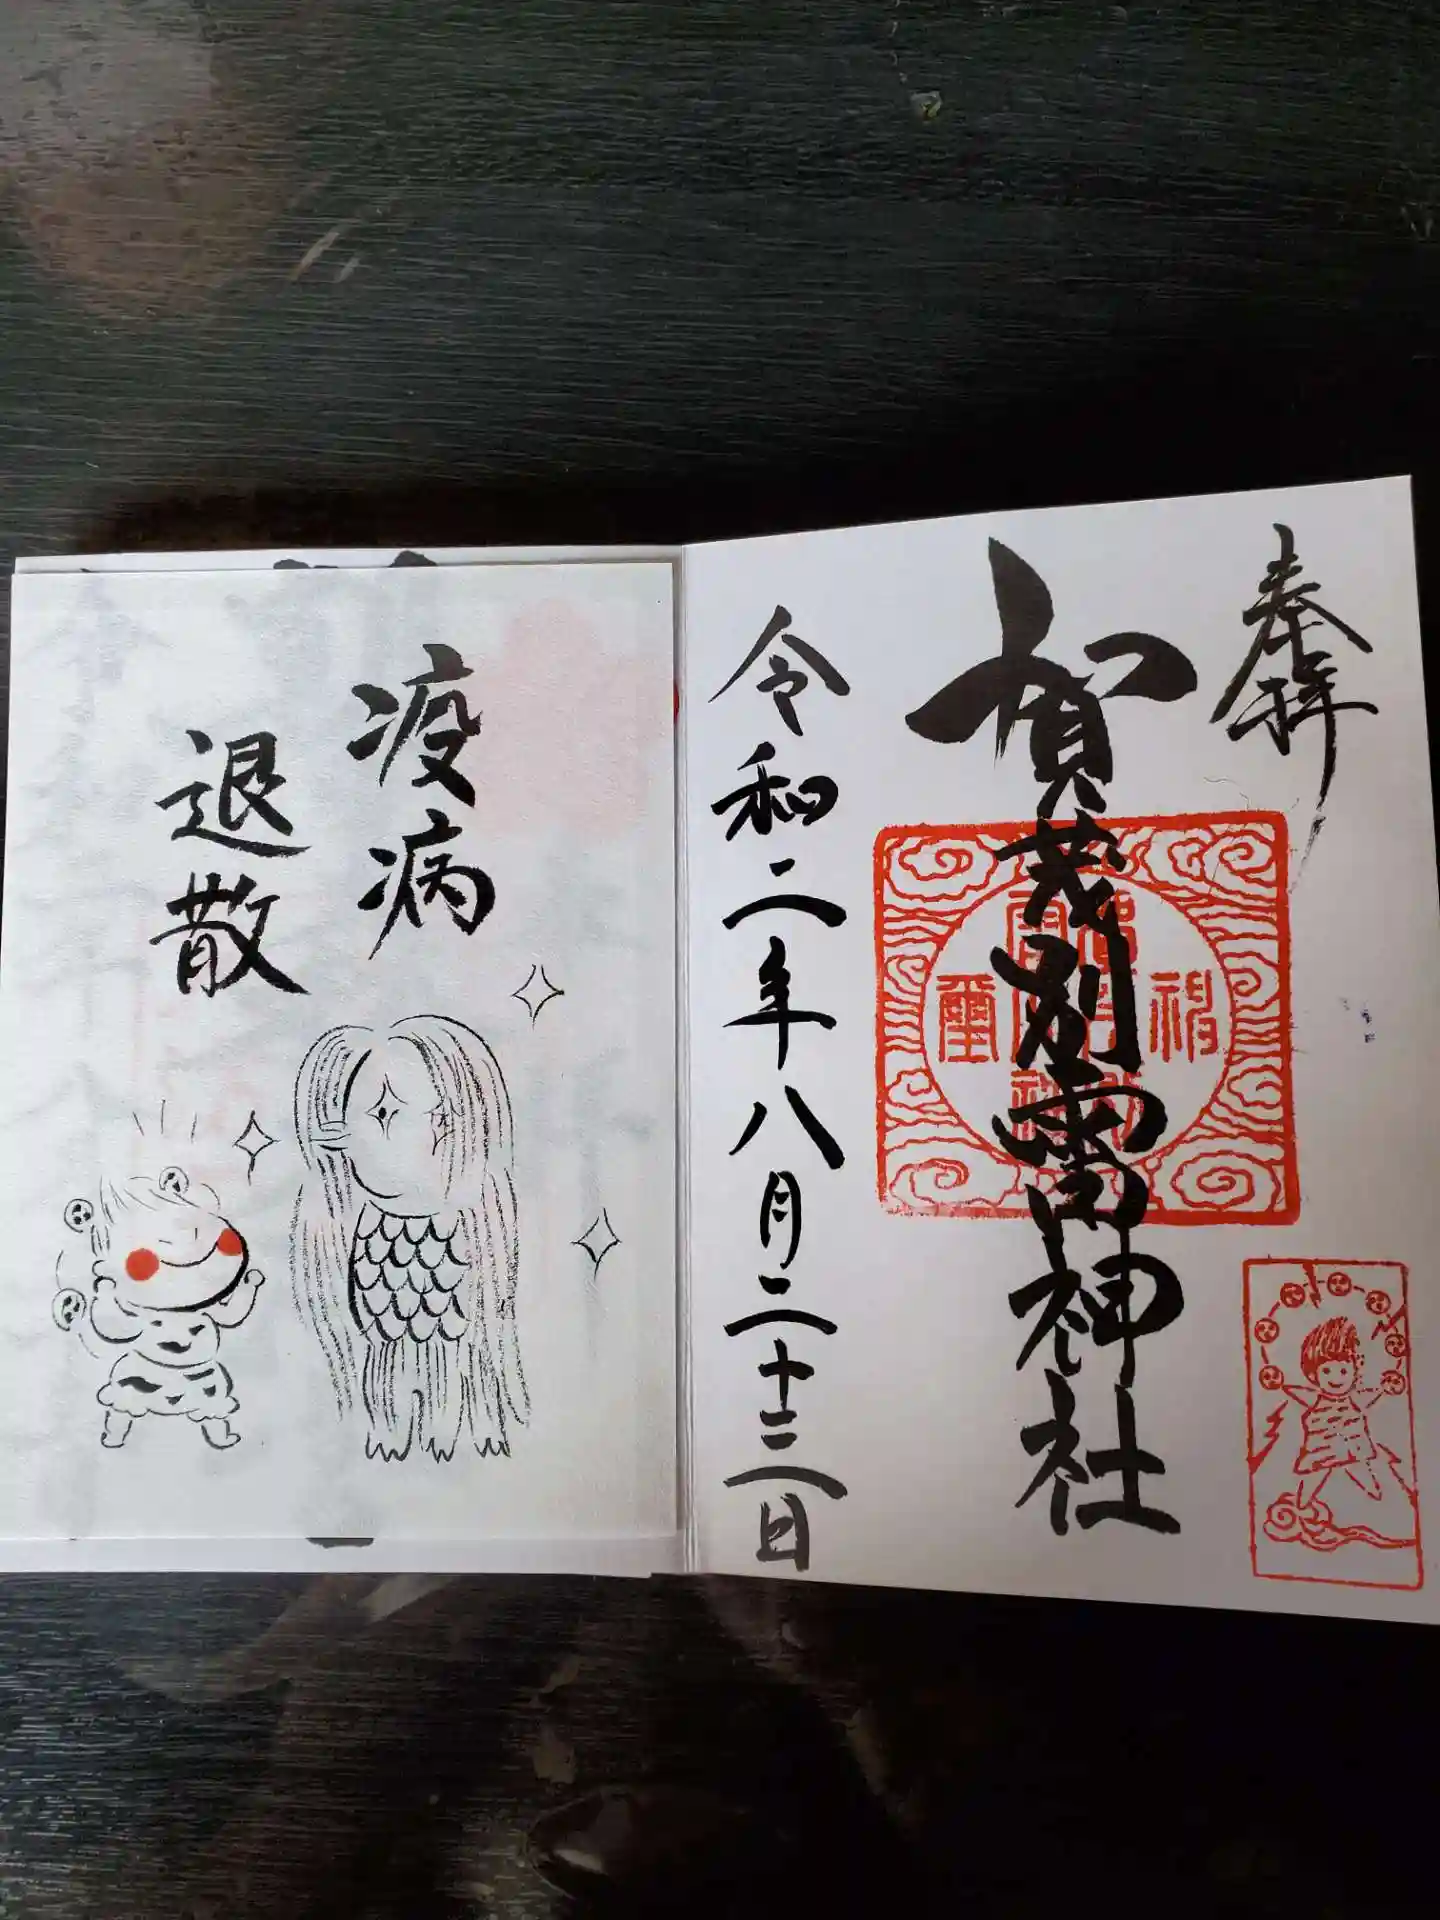 奉拝
賀茂別雷神社
令和二年八月二十二日
疫病
退散